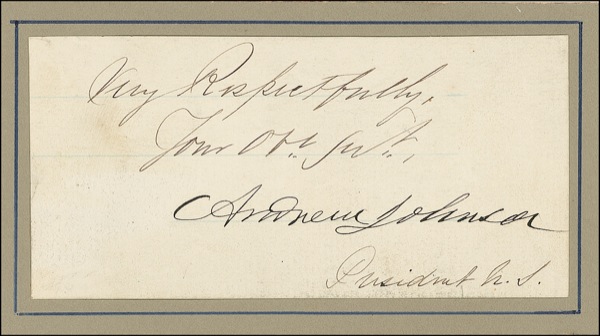 Very Respectfully,
Your Obt. Svt.,
Andrew Johnson
President U.S.